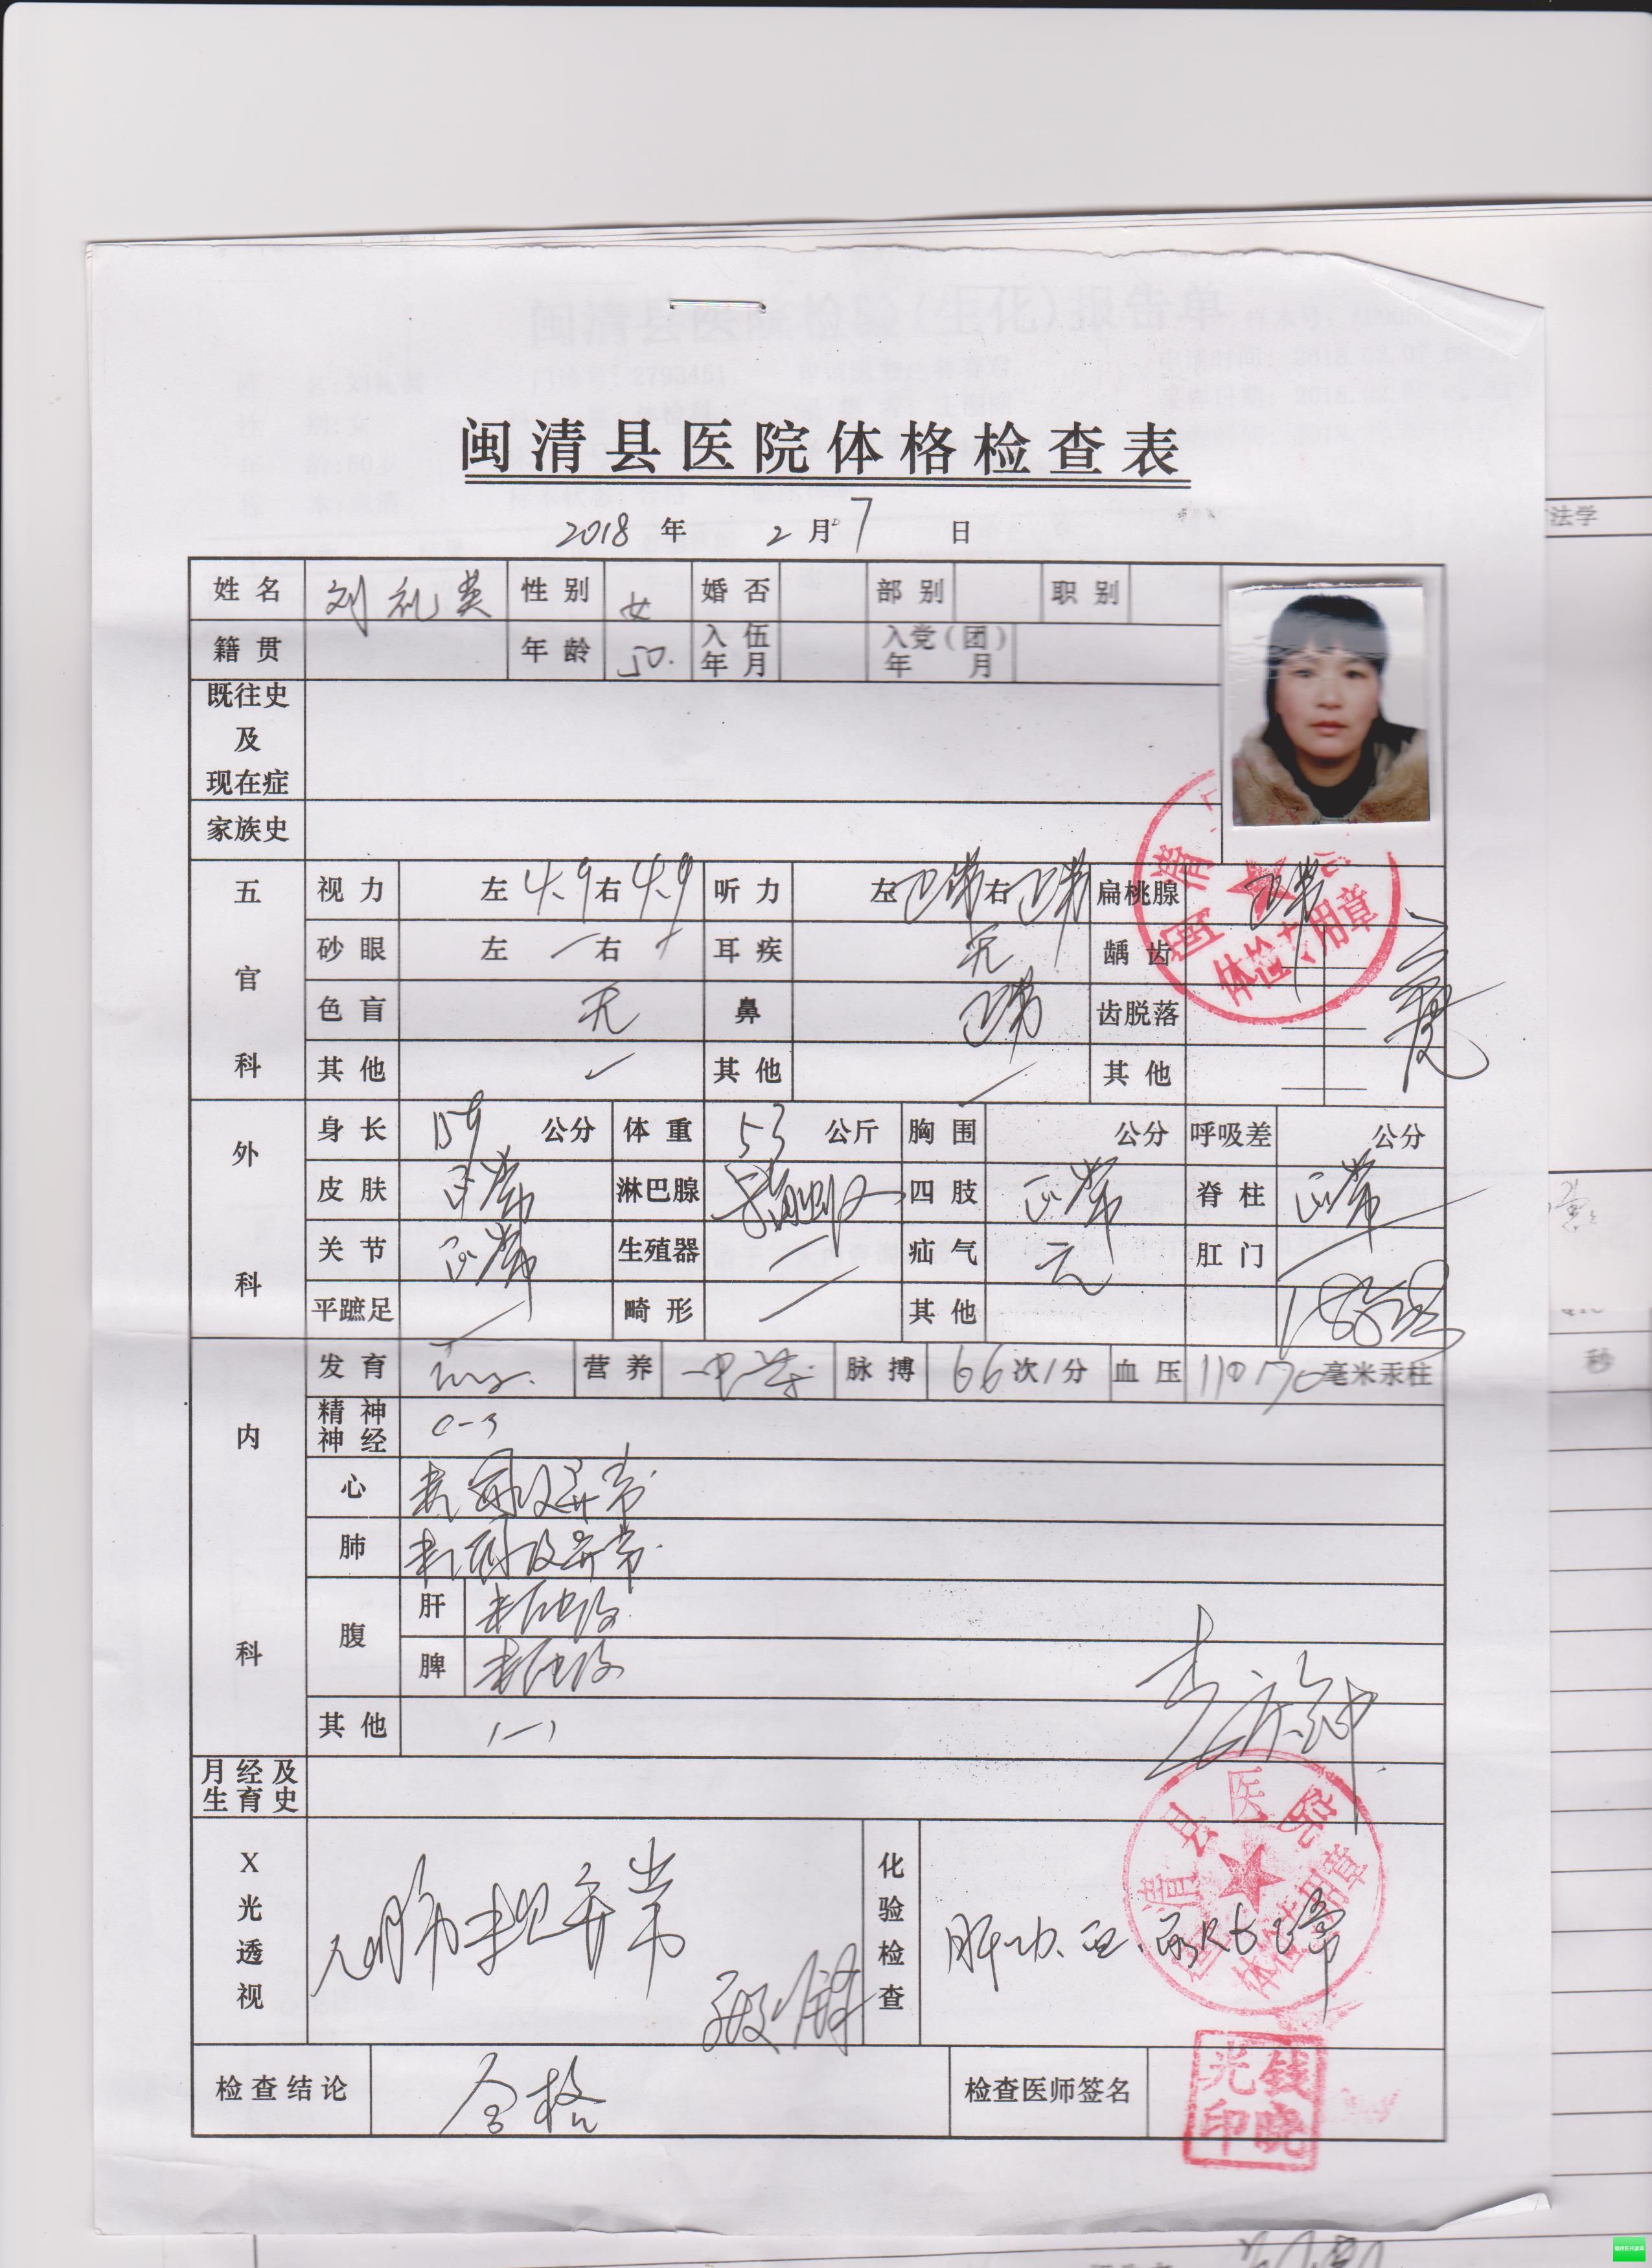 闽清县医院体格检查表
2018 年 2 月 7 日
姓名 刘礼英 性别 女 婚否 部别 职别
籍贯 年龄 50. 入伍年月 入党(团)年月
既往史及现在症
家族史
五官科
视力 左 4.9 右 4.9 听力 左 正常 右 正常 扁桃腺 正常
砂眼 左 一 右 耳疾 无 龋齿
色盲 无 鼻 正常 齿脱落
其他 其他 其他
外科
身长 159 公分 体重 53 公斤 胸围 公分 呼吸差 公分
皮肤 正常 淋巴腺 四肢 正常 脊柱 正常
关节 正常 生殖器 疝气 无 肛门
平蹠足 畸形 其他
内科
发育 营养 中等 脉搏 66 次/分 血压 110/70 毫米汞柱
精神神经
心 未闻及异常
肺 未闻及异常
腹 肝 未触及
脾 未触及
其他 (一)
月经及生育史
X光透视 心肺未见异常
化验检查 肝功、血、尿Rt正常
检查结论 合格 检查医师签名
清县医院
体检专用章
钱晓光印
法学
秒